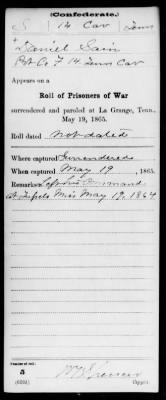 (Confederate.)
S 14 Cav Tenn
Daniel Sain
Pvt Co F 14 Tenn Cav
Appears on a
Roll of Prisoners of War
surrendered and paroled at La Grange, Tenn.,
May 19, 1865.
Roll dated Not dated
Where captured Surrendered
When captured May 19, 1865.
Remarks: Left his Command
at Tupelo Miss May 19, 1864
Number of roll:
5
(639b) Copyist.